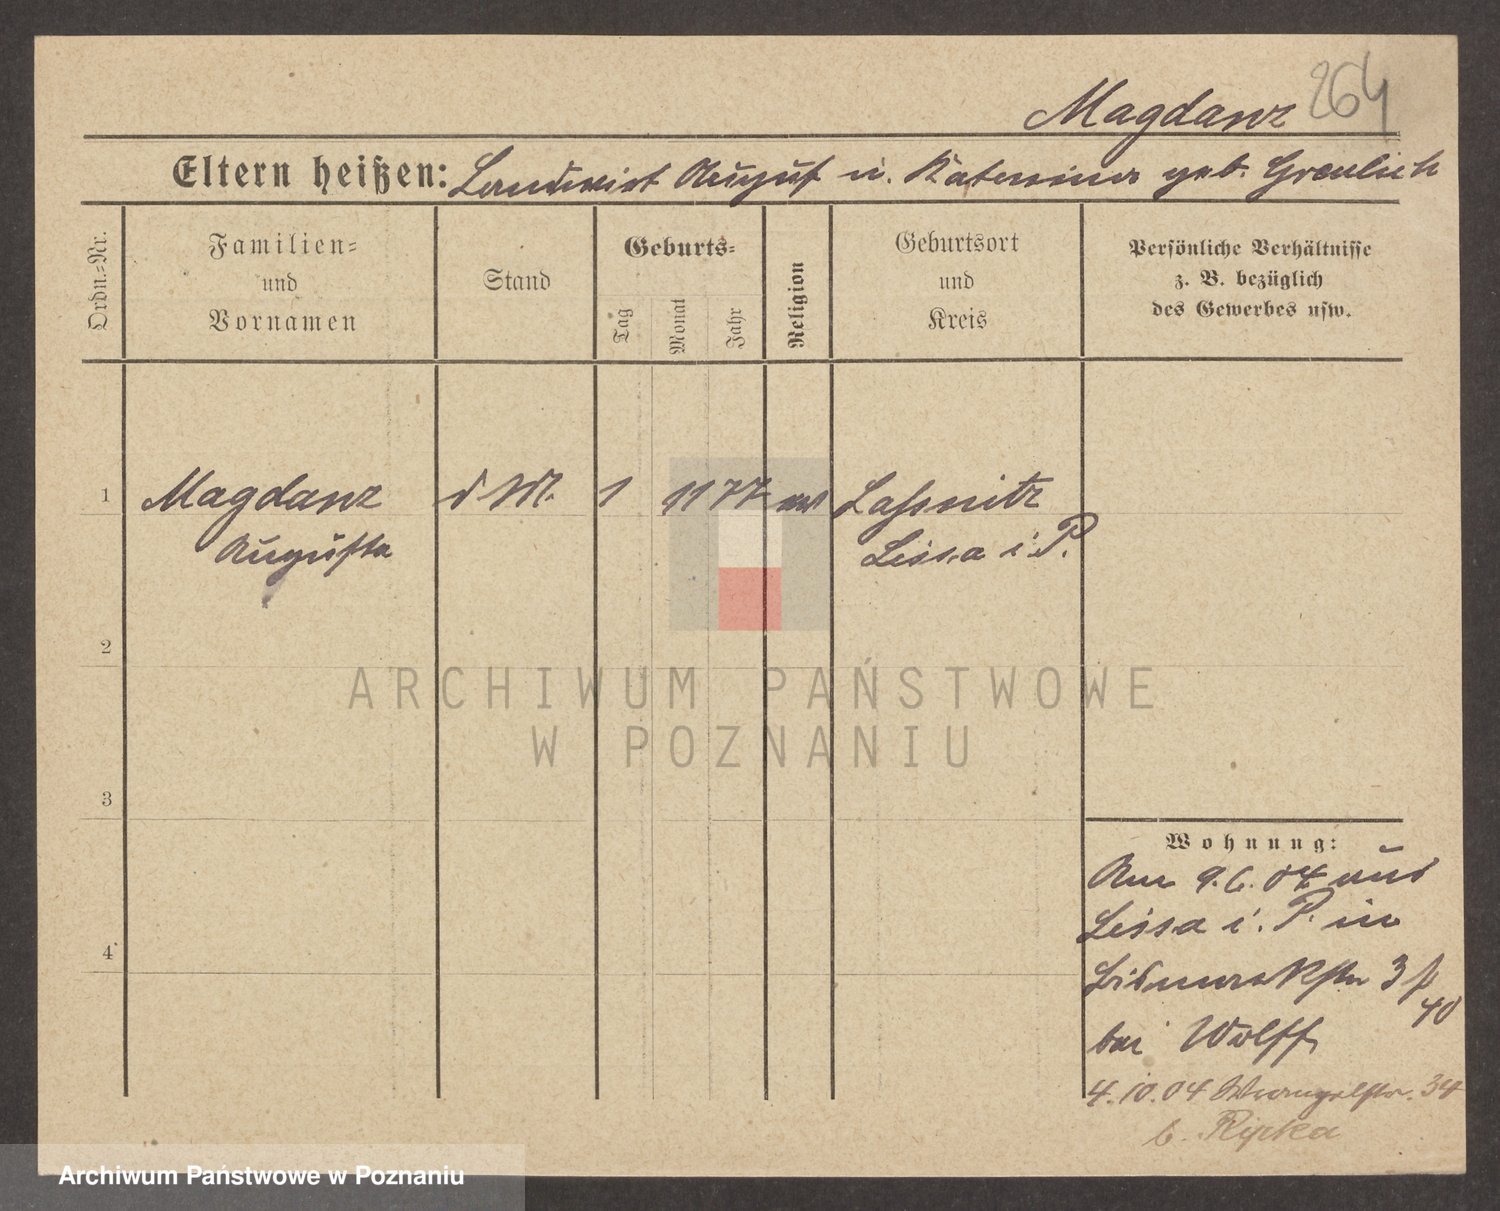 Magdanz 264
Eltern heißen: Landwirt August u. Katerina geb. Greulich
Ordn.=Nr.
Familien=
und
Vornamen
Stand
Geburts=
Tag
Monat
Jahr
Religion
Geburtsort
und
Kreis
Persönliche Verhältnisse
z. B. bezüglich
des Gewerbes usw.
1 Magdanz d M. 1 11 77 ev Laßwitz
Augusta Lissa i. P.
2
3
4
Wohnung:
Am 9.6.04 aus
Lissa i. P. in
Bismarckstr 3
40
bei Wolff
4.10.04 Wrangelstr. 34
b. Ripka
ARCHIWUM PAŃSTWOWE
W POZNANIU
Archiwum Państwowe w Poznaniu